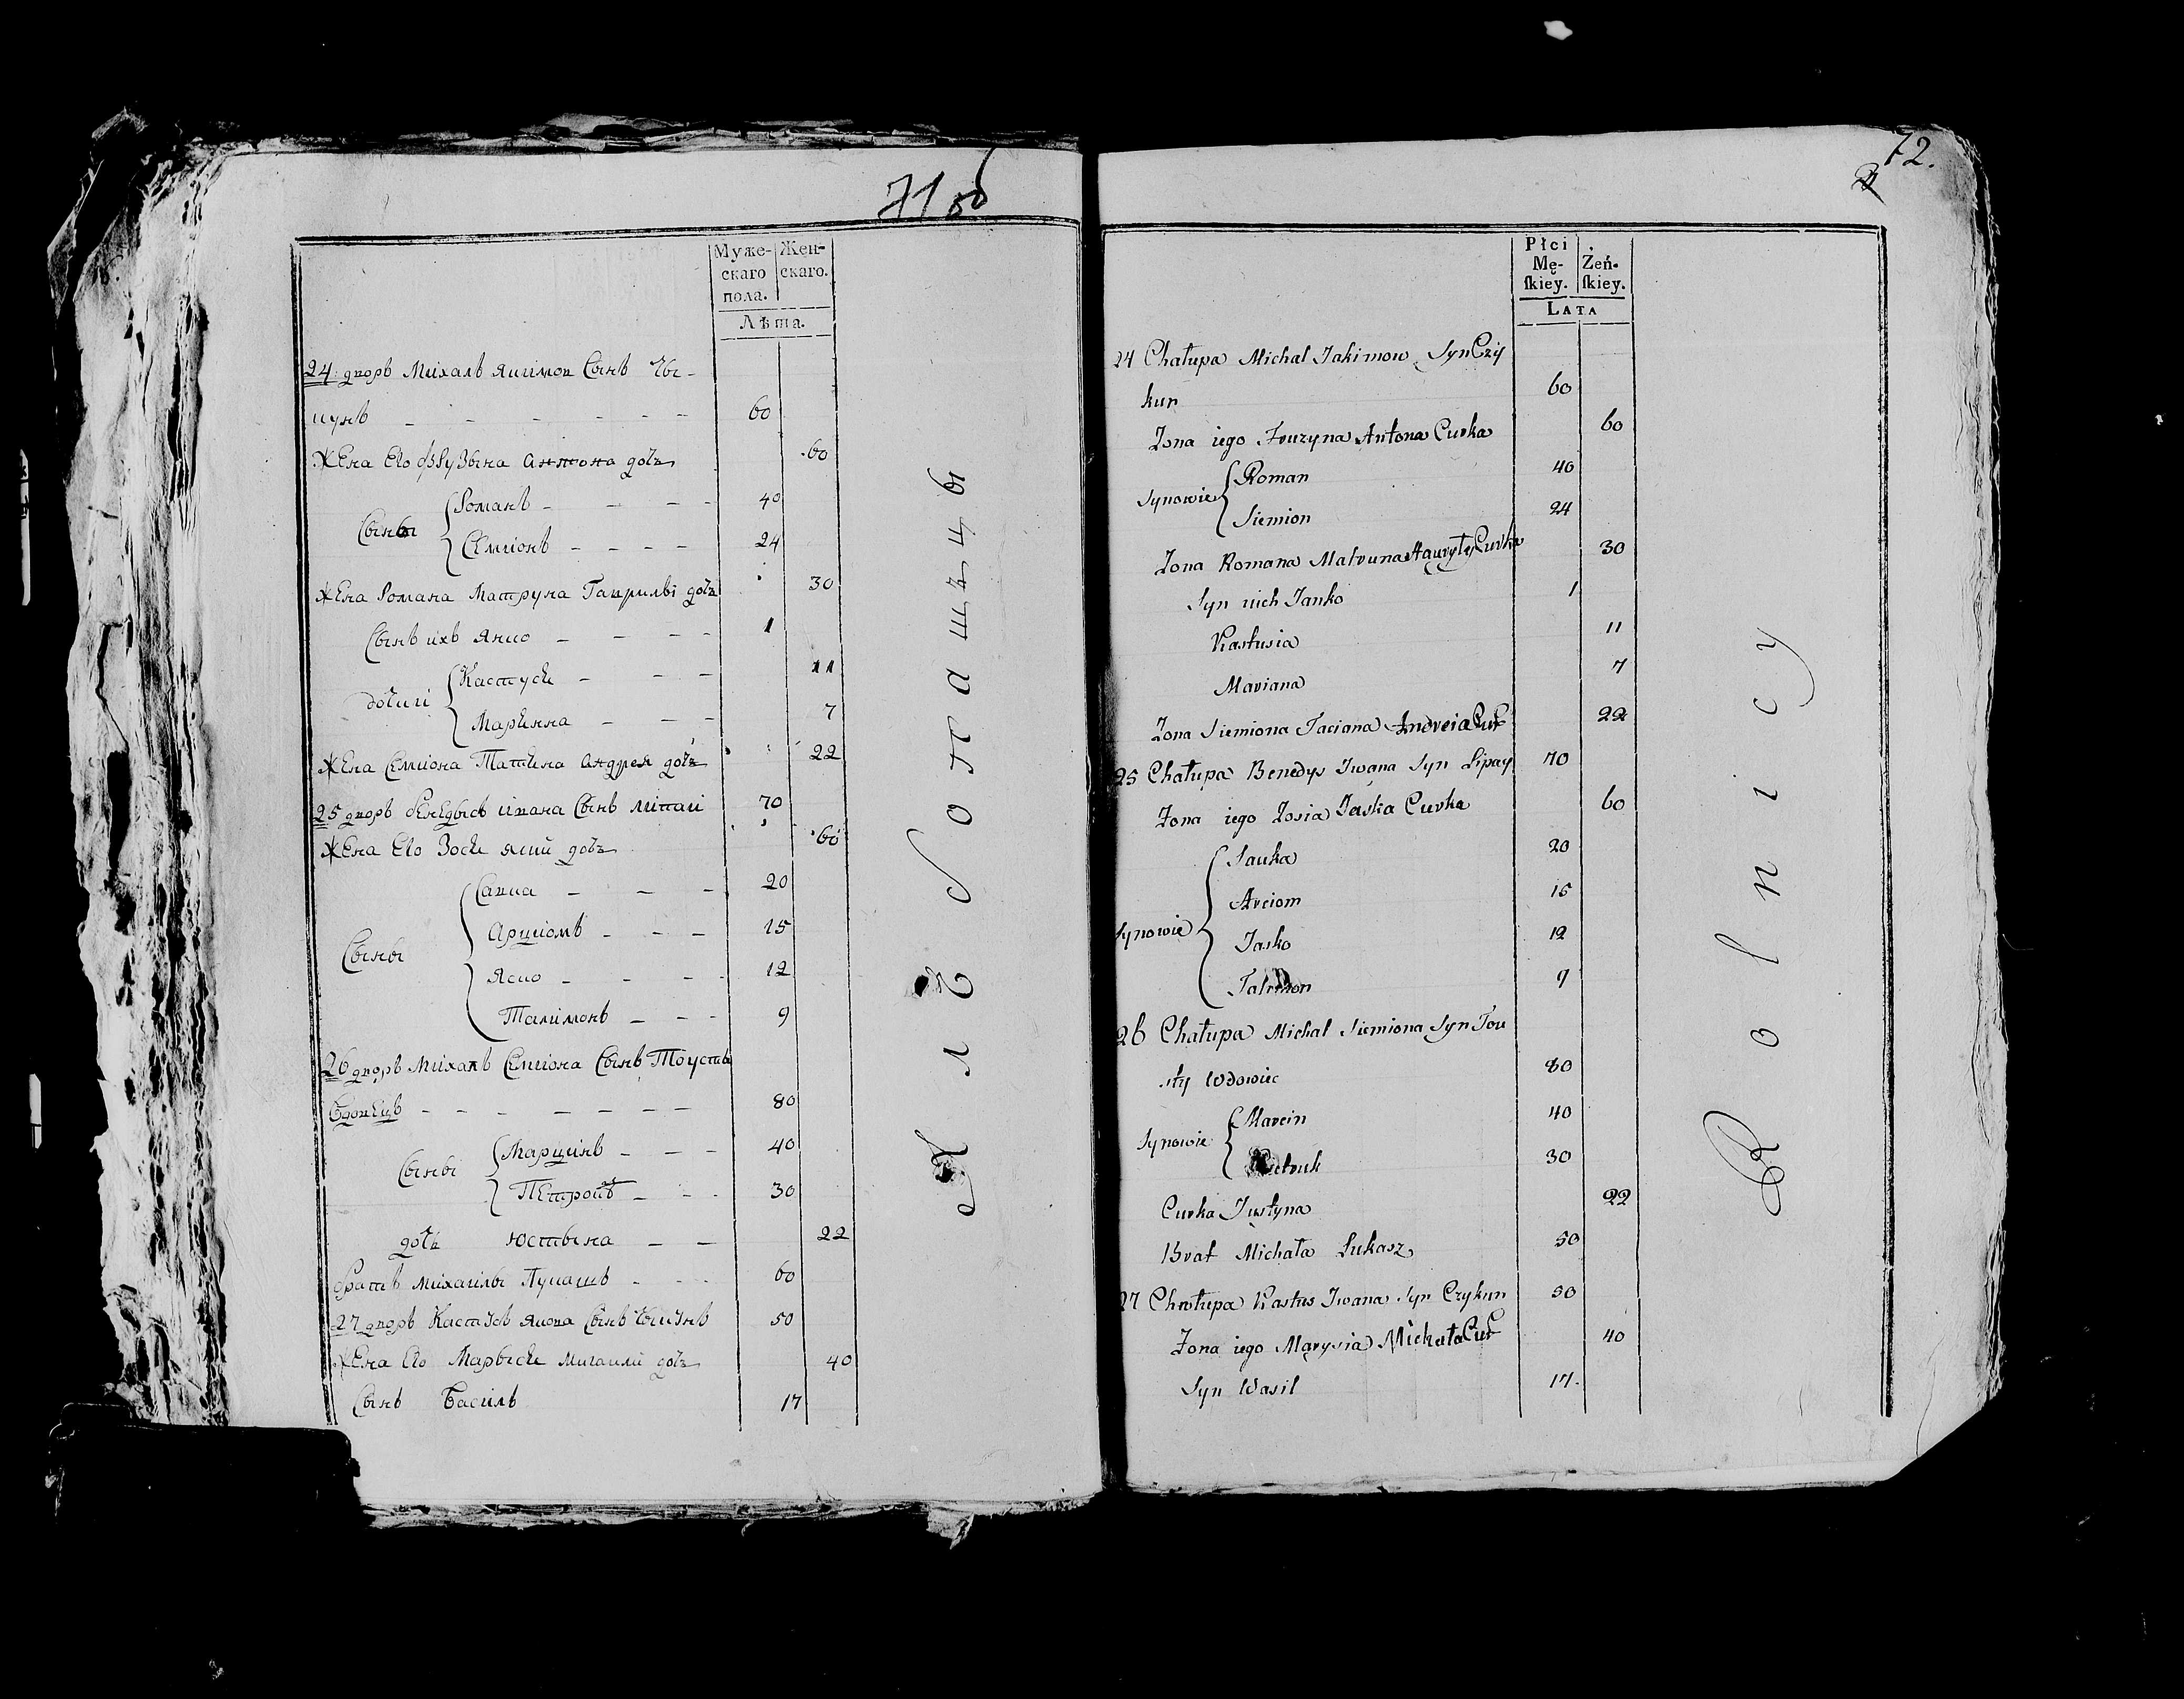 71 об
Муже-
скаго
пола.
Жен-
скаго.
Лѣта.
24 дворъ Михалъ Якимов Сынъ Чы-
кунъ 60
Жена Его Фрузына Антона дочь 60
Сыны
Романъ 40
Семіонъ 24
Жена Романа Матруна Гаврилы дочь 30
Сынъ ихъ Янко 1
дочки
Кастуся 11
Марьяна 7
Жена Семіона Татьяна Андрея дочь 22
25 дворъ Бенедысь Ивана Сынъ Липай 70
Жена Его Зося Яски дочь 60
Сыны
Савка 20
Арціомъ 15
Яско 12
Талимонъ 9
26 дворъ Михалъ Семіона Сынъ Тоусты
Вдовецъ 80
Сыны
Марцинъ 40
Петрукъ 30
дочь Юстына 22
братъ Михайлы Лукашъ 60
27 дворъ Кастусь Ивана Сынъ Чыкунъ 50
Жена Его Марыся Михайлы дочь 40
Сынъ Василь 17
Хлебопашъцы
72.
Płci
Mę-
ſkiey.
Żeń-
ſkiey.
LATA
24 Chałupa Michał Jakimow Syn Czy
kun 60
Zona iego Fruzyna Antona Curka 60
Synowie
Roman 40
Siemion 24
Zona Romana Matruna Hauryły Curka 30
Syn iich Janko 1
Kastusia 11
Mariana 7
Zona Siemiona Taciana Andreia Cur 22
25 Chałupa Benedys Iwana Syn Lipay 70
Zona iego Zosia Jaska Curka 60
Synowie
Sauka 20
Arciom 15
Jasko 12
Talimon 9
26 Chałupa Michał Siemiona Syn Tou
sty Wdowiec 80
Synowie
Marcin 40
Pietruk 30
Curka Justyna 22
Brat Michała Łukasz 50
27 Chałupa Kastus Iwana Syn Czykun 50
Zona iego Marysia Michała Cur 40
Syn Wasil 17.
Rolnicy